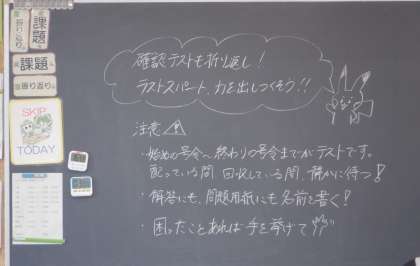 課題
振り返り
課題
振り返り
SKIP
TODAY
確認テストも折り返し!
テストスパート、力を出しつくそう!!
注意
・始めの号令~終わりの号令までがテストです。
配っている間、回収している間、静かに待つ!
・解答にも、問題用紙にも名前を書く!
・困ったことあれば手を挙げて